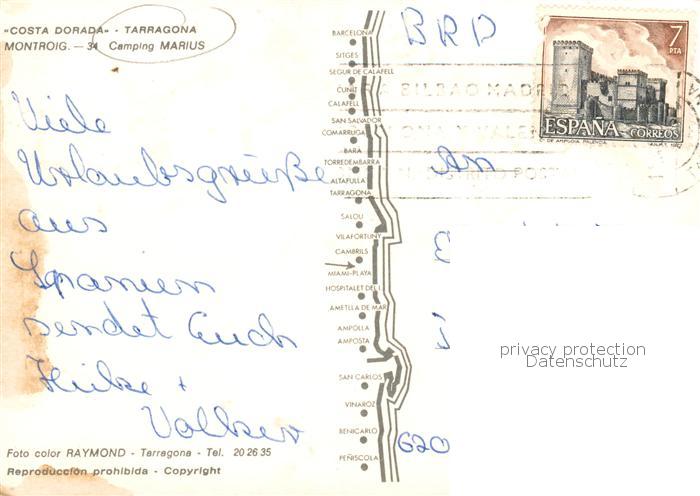 "COSTA DORADA" - TARRAGONA
MONTROIG. — 34 Camping MARIUS
Viele
Urlaubsgrüße
aus
Spanien
sendet Euch
Heike +
Volker
Foto color RAYMOND - Tarragona - Tel. 20 26 35
Reproducción prohibida - Copyright
BARCELONA
SITGES
SEGUR DE CALAFELL
CUNIT
CALAFELL
SAN SALVADOR
COMARRUGA
BARA
TORREDEMBARRA
ALTAFULLA
TARRAGONA
SALOU
VILAFORTUNY
CAMBRILS
MIAMI-PLAYA
HOSPITALET DEL I.
AMETLLA DE MAR
AMPOLLA
AMPOSTA
SAN CARLOS
VINAROZ
BENICARLO
PEÑISCOLA
BRD
An
620
7
PTA
ESPAÑA CORREOS
C° DE AMPUDIA. PALENCIA
BILBAO MADRID
privacy protection
Datenschutz